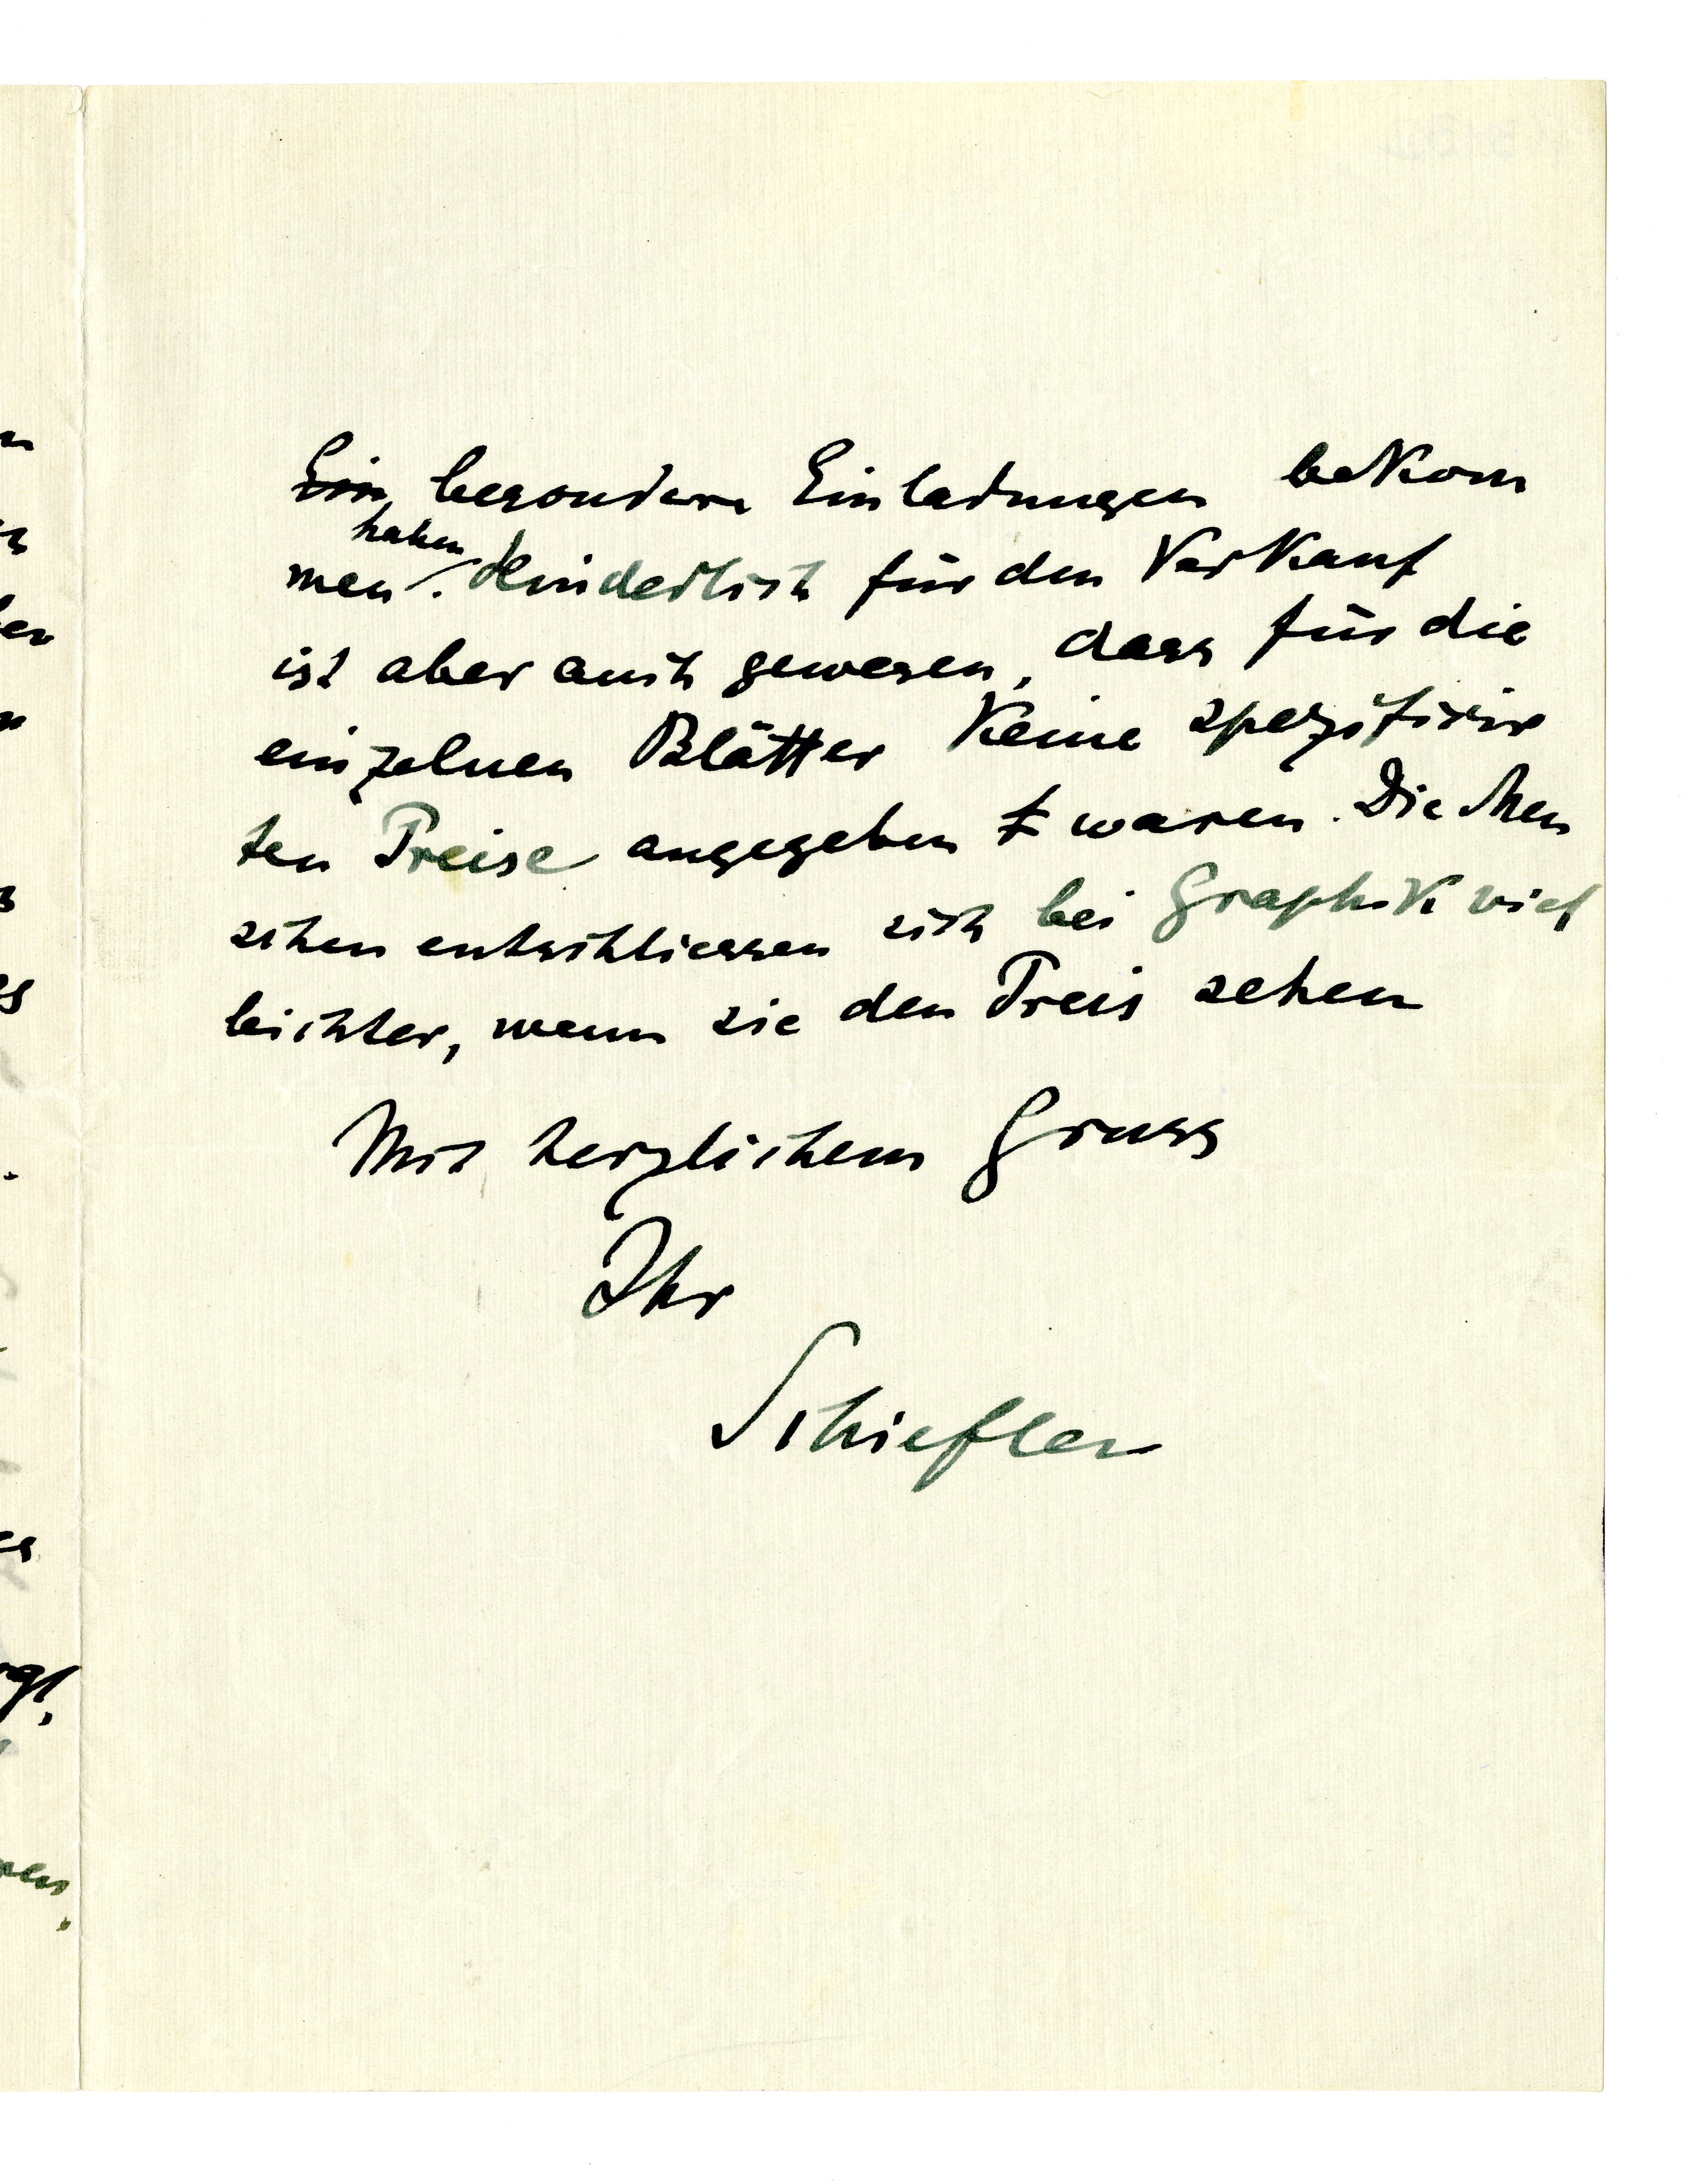 Ein besondere Einladungen bekom
haben
men. Hinderlich für den Verkauf
ist aber auch gewesen, dass für die
einzelnen Blätter keine spezifizir
ten Preise angegeben waren. Die Men
schen entschliessen sich bei Graphik viel
leichter, wenn sie den Preis sehen
Mit herzlichem Gruss
Ihr
Schiefler